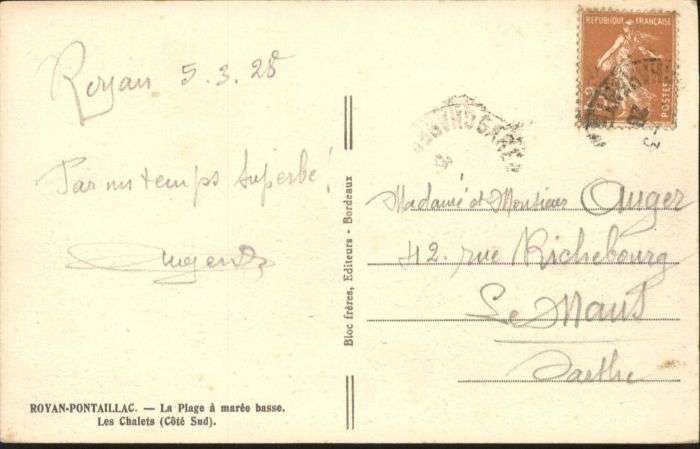 Royan 5.3.28
Par un temps superbe!
RÉPUBLIQUE FRANÇAISE
POSTES
Madame et Monsieur Auger
42. rue Richebourg
Le Mans
Sarthe
Bloc frères, Editeurs - Bordeaux
ROYAN-PONTAILLAC. — La Plage à marée basse.
Les Chalets (Côté Sud).